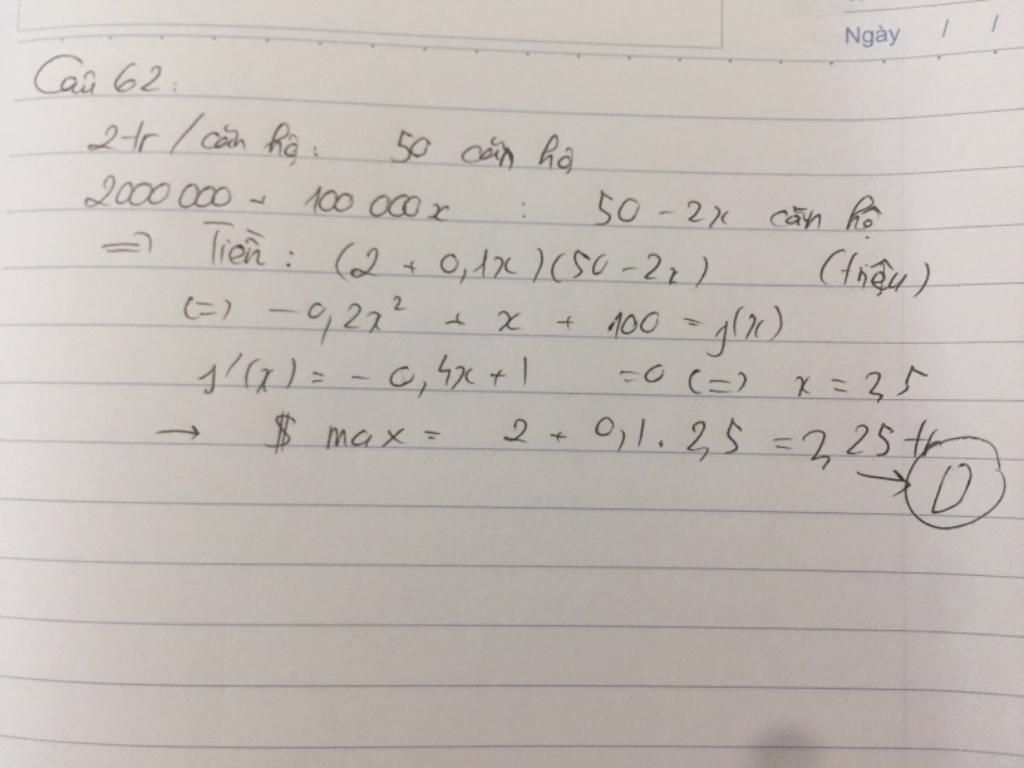 Ngày / /
Câu 62:
2tr/căn hộ: 50 căn hộ
2000 000 + 100 000x : 50 - 2x căn hộ
=> Tiền: (2 + 0,1x)(50 - 2x) (triệu)
(=) -0,2x² + x + 100 = f(x)
f'(x) = - 0,4x + 1 = 0 (=) x = 2,5
→ $ max = 2 + 0,1 . 2,5 = 2,25 tr
→ D